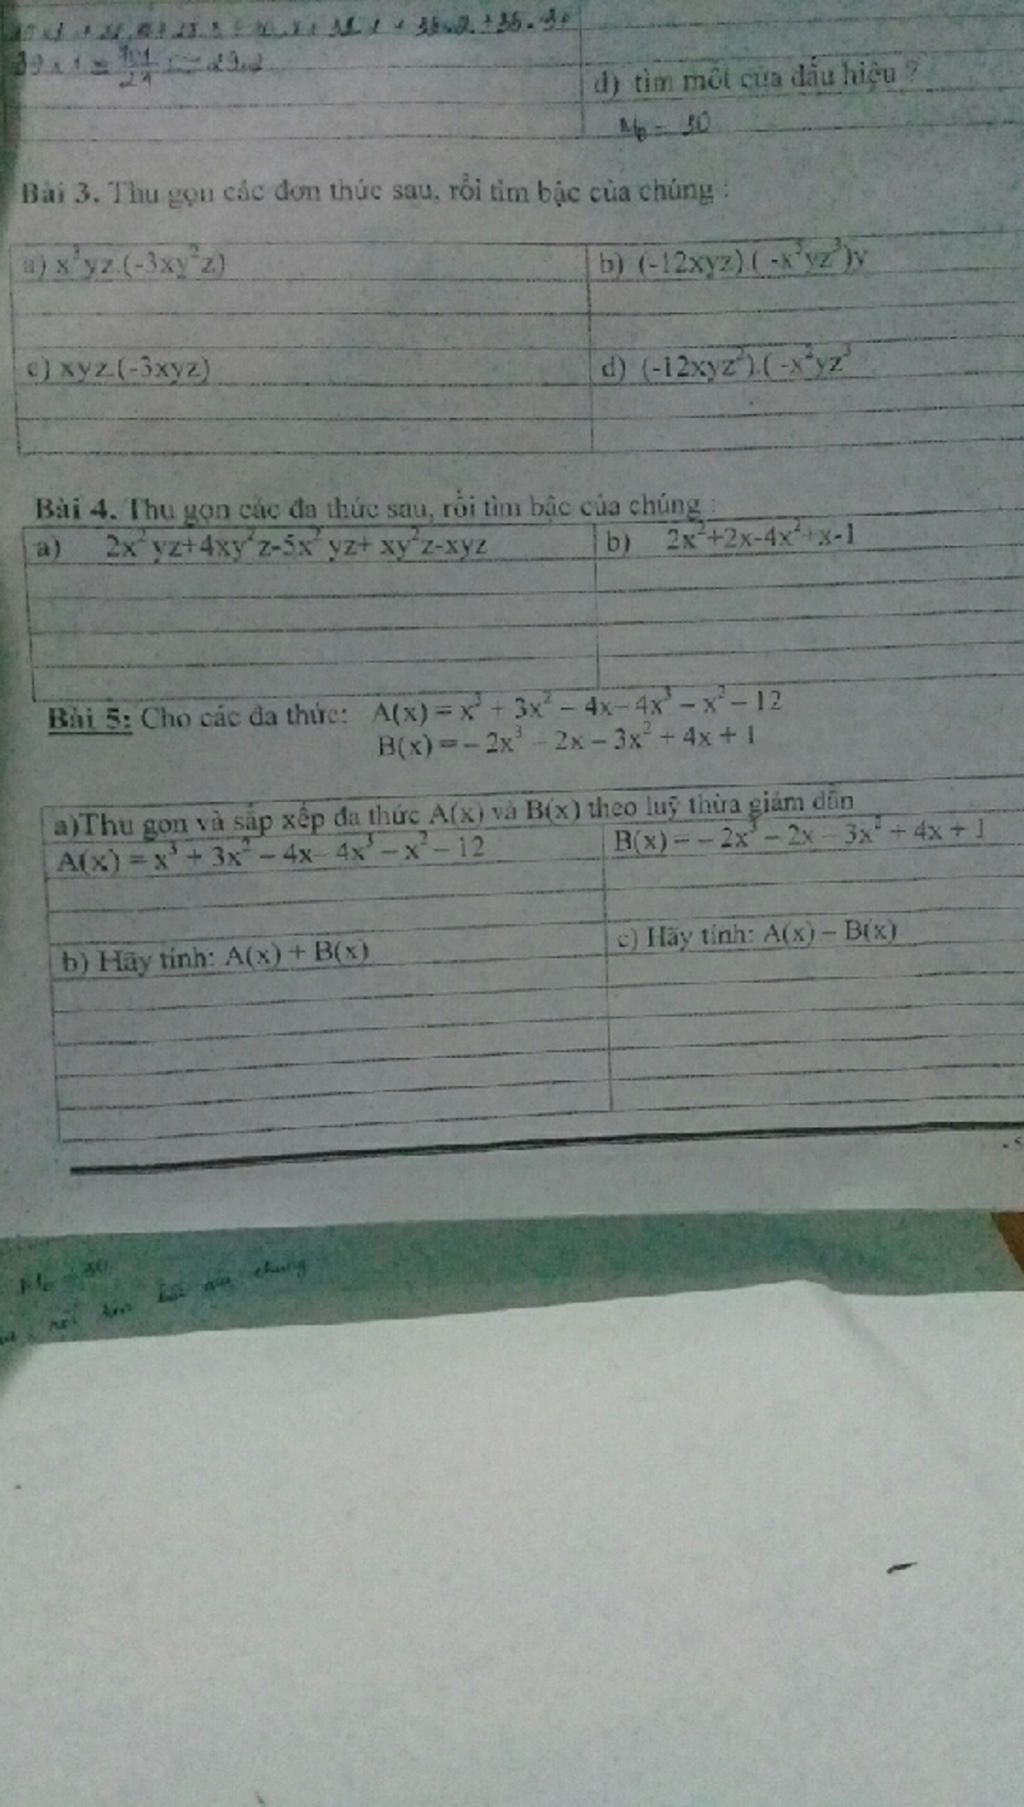 d) tìm mốt của dấu hiệu ?
M₀ = 30
Bài 3. Thu gọn các đơn thức sau, rồi tìm bậc của chúng :
a) x³yz.(-3xy²z)
b) (-12xyz).( -x³yz³)y
c) xyz.(-3xyz)
d) (-12xyz²).( -x²yz³
Bài 4. Thu gọn các đa thức sau, rồi tìm bậc của chúng :
a) 2x²yz+4xy²z-5x²yz+ xy²z-xyz
b) 2x²+2x-4x²+x-1
Bài 5: Cho các đa thức: A(x) = x³ + 3x² – 4x– 4x³ – x² – 12
B(x) = – 2x³ – 2x – 3x² + 4x + 1
a)Thu gọn và sắp xếp đa thức A(x) và B(x) theo luỹ thừa giảm dần
A(x) = x³ + 3x² – 4x– 4x³ – x² – 12
B(x) = – 2x³ – 2x – 3x² + 4x + 1
b) Hãy tính: A(x) + B(x)
c) Hãy tính: A(x) – B(x)